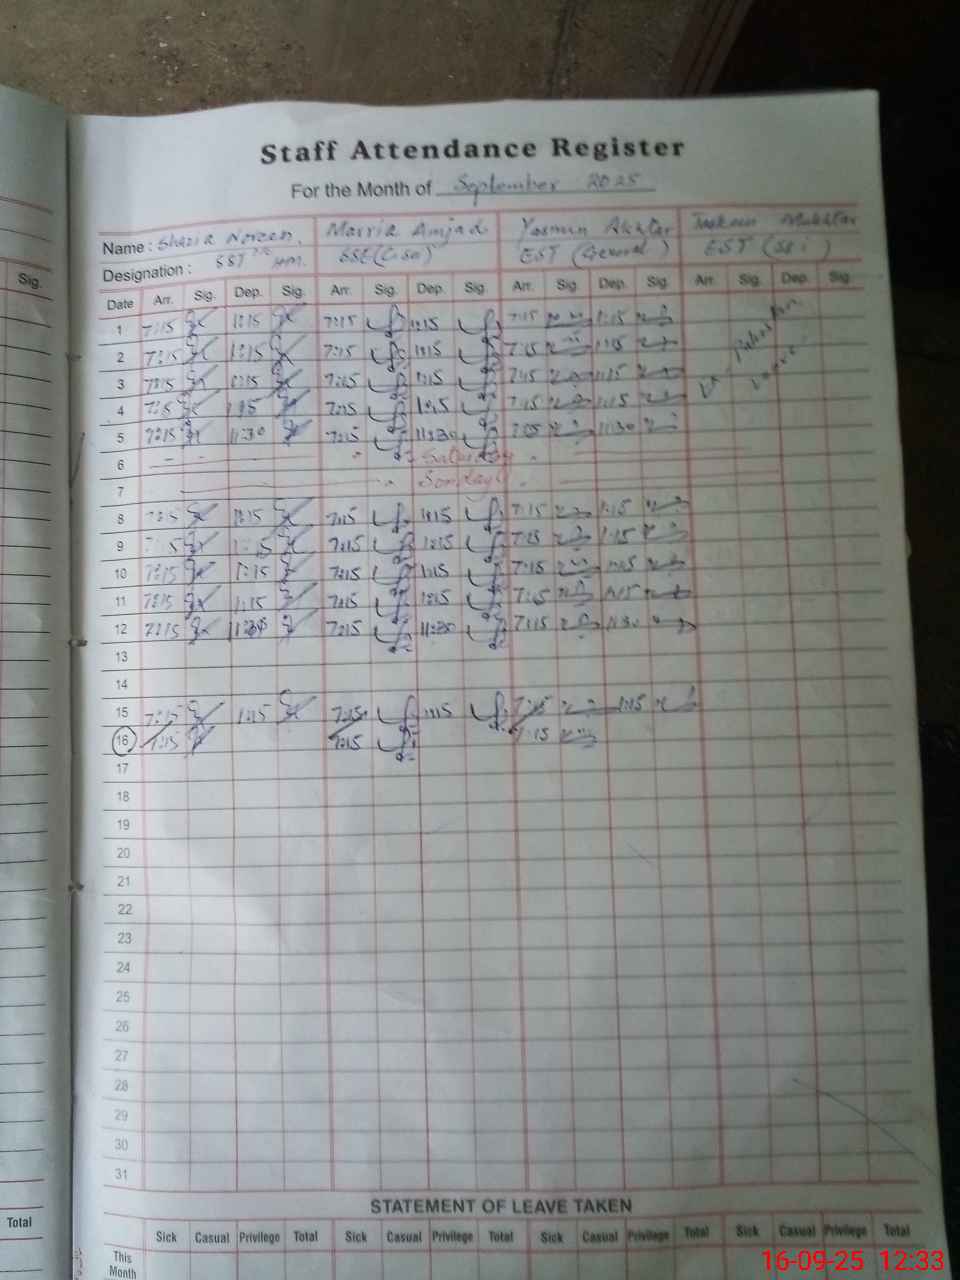 Staff Attendance Register
For the Month of September 2025
Sig.
Name : Shazia Noreen. Marria Amjad Yasmin Akhtar Mukhtar
Designation : SST HM. SSE EST (General) EST (Sci)
Date Arr. Sig. Dep. Sig. Arr. Sig. Dep. Sig. Arr. Sig. Dep. Sig. Arr. Sig. Dep. Sig.
1 7:15 1:15 7:15 1:15 7:15 1:15
2 7:15 1:15 7:15 1:15 7:15 1:15
3 7:15 1:15 7:15 1:15 7:15 1:15
4 7:15 1:15 7:15 1:15 7:15 1:15
5 7:15 11:30 7:15 11:30 7:15 11:30
6 Saturday
7 Sunday
8 7:15 1:15 7:15 1:15 7:15 1:15
9 1:15 7:15 1:15 7:15 1:15
10 7:15 1:15 7:15 1:15 7:15 1:15
11 7:15 1:15 7:15 1:15 7:15 1:15
12 7:15 11:30 7:15 11:30 7:15 11:30
13
14
15 7:15 1:15 7:15 1:15 7:15 1:15
16 7:15 7:15 7:15
17
18
19
20
21
22
23
24
25
26
27
28
29
30
31
STATEMENT OF LEAVE TAKEN
Total
Sick Casual Privilege Total Sick Casual Privilege Total Sick Casual Privilege Total Sick Casual Privilege Total
This
Month
16-09-25 12:33